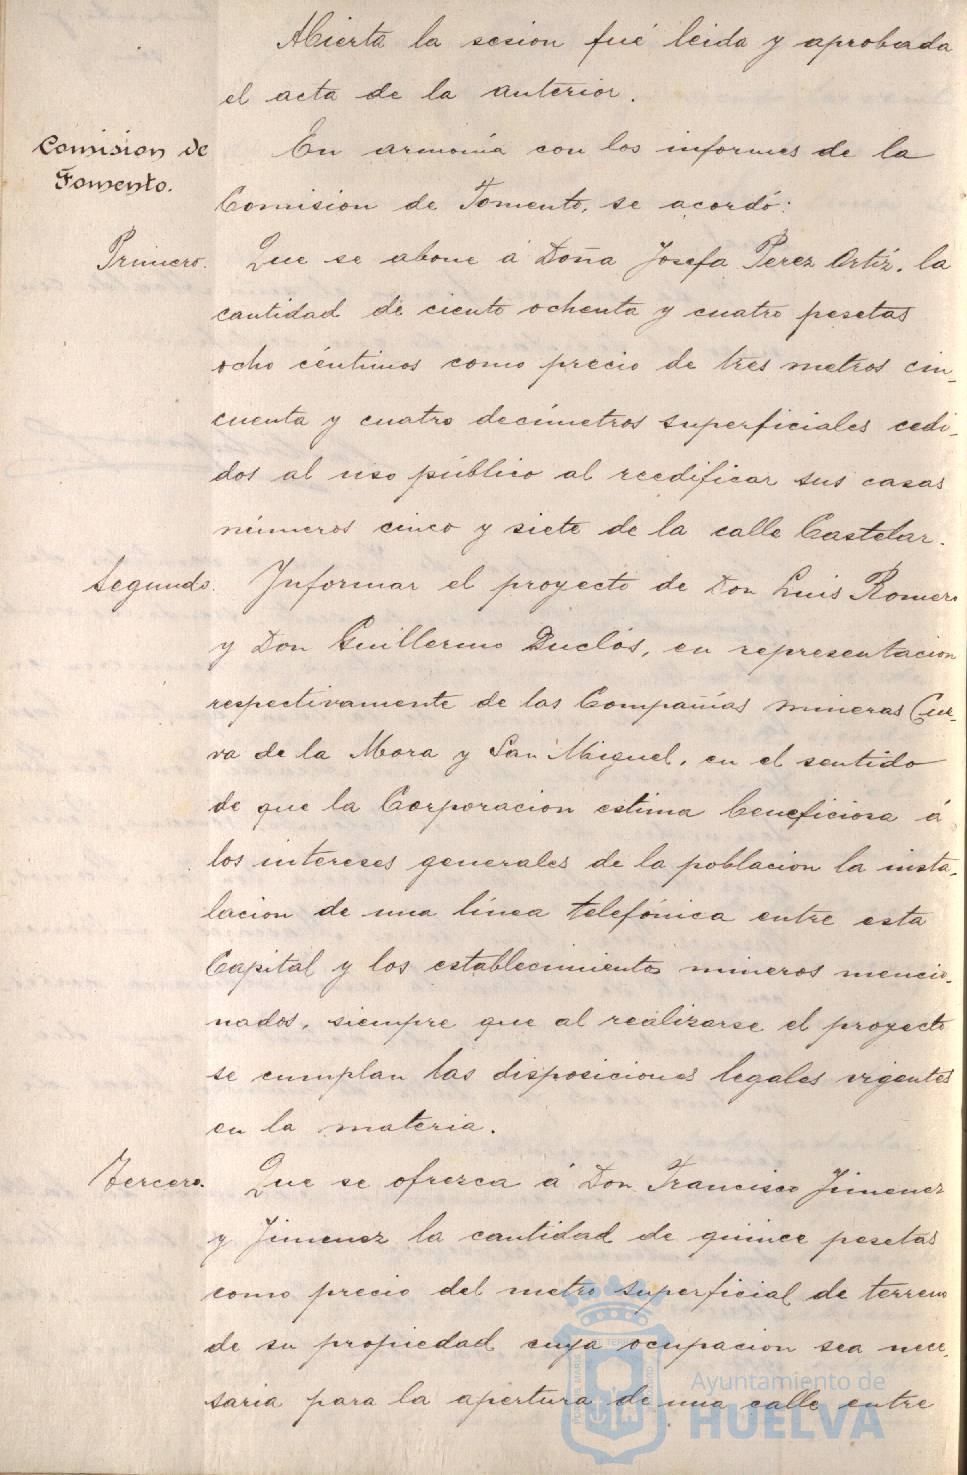 Abierta la sesion fué leida y aprobada
el acta de la anterior.
Comision de
Fomento.
En armonía con los informes de la
Comision de Fomento, se acordó:
Primero. Que se abone á Doña Josefa Perez Ortíz, la
cantidad de ciento ochenta y cuatro pesetas
ocho céntimos como precio de tres metros cin-
cuenta y cuatro decímetros superficiales cedi-
dos al uso público al reedificar sus casas
números cinco y siete de la calle Castelar.
Segundo. Informar el proyecto de Don Luis Romero
y Don Guillermo Duclós, en representacion
respectivamente de las Compañías mineras Cue-
va de la Mora y San Miguel, en el sentido
de que la Corporacion estima beneficiosa á
los intereses generales de la poblacion la insta-
lacion de una línea telefónica entre esta
Capital y los establecimientos mineros mencio-
nados, siempre que al realizarse el proyecto
se cumplan las disposiciones legales vigentes
en la materia.
Tercero. Que se ofrezca á Don Francisco Jimenez
y Jimenez la cantidad de quince pesetas
como precio del metro superficial de terreno
de su propiedad cuya ocupacion sea nece-
saria para la apertura de una calle entre
Ayuntamiento de
HUELVA